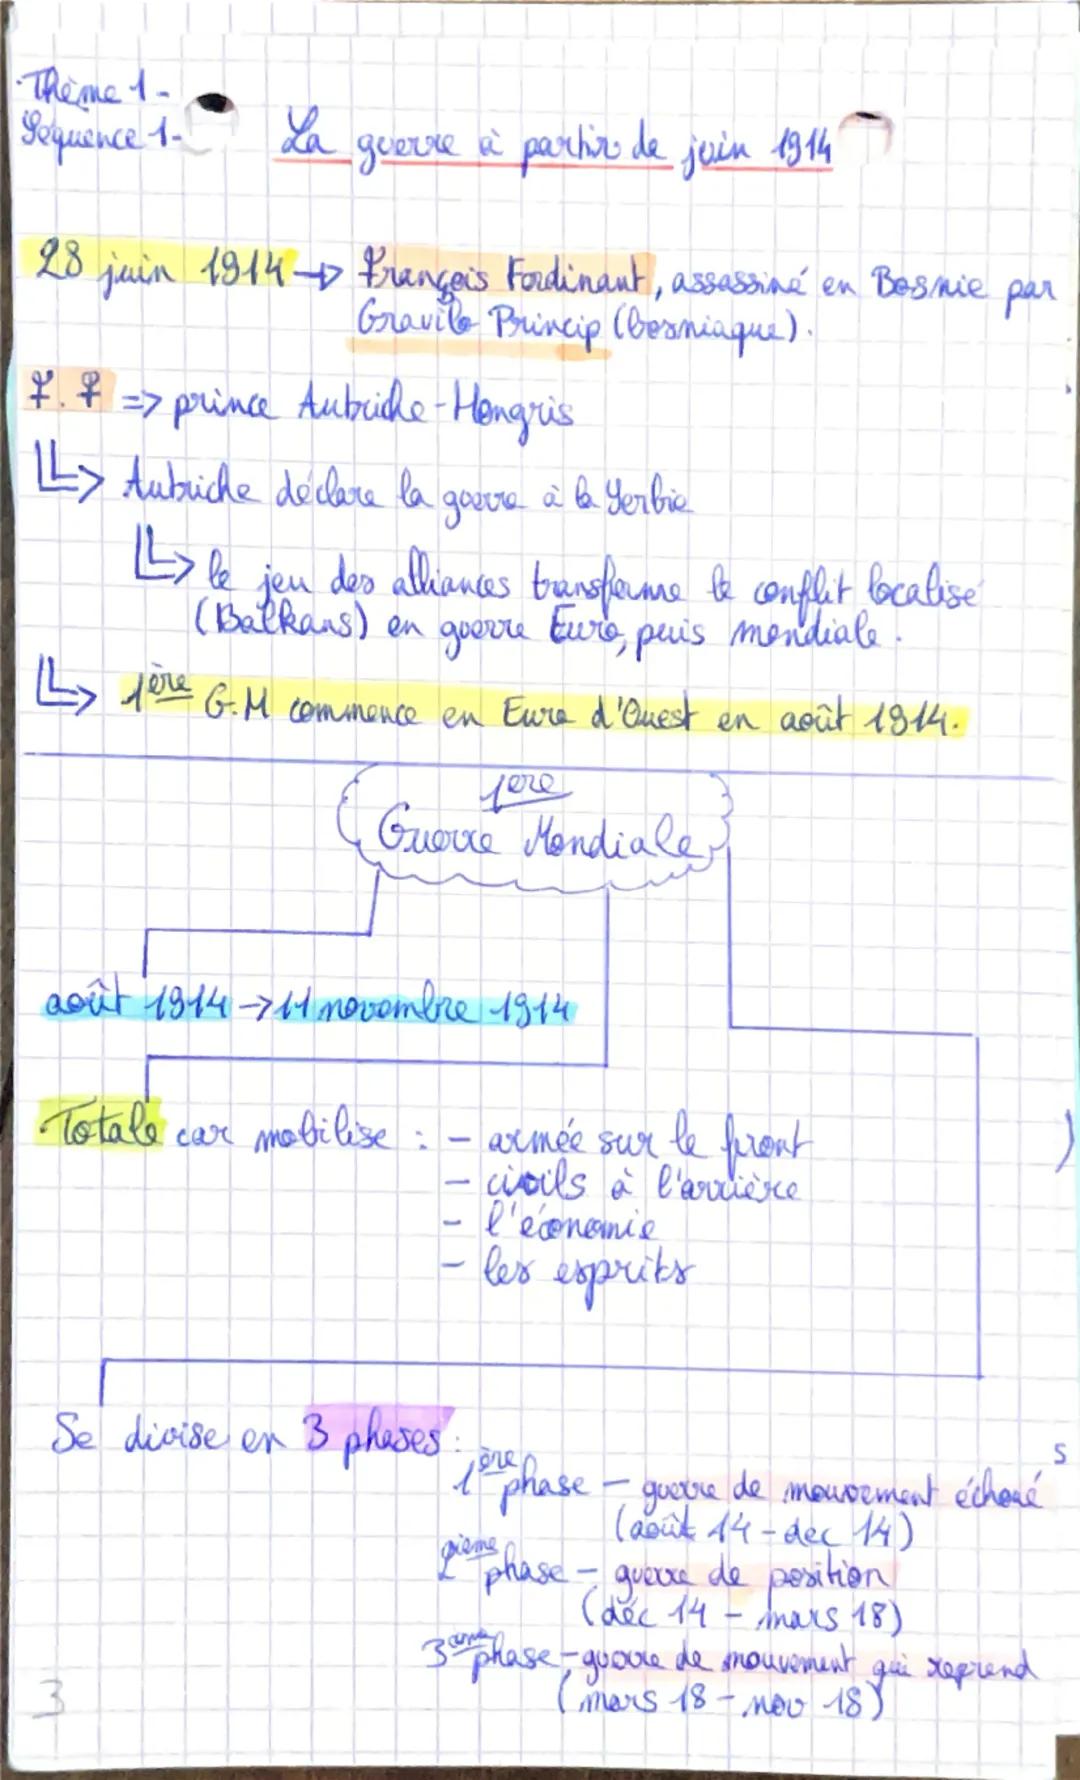 Thème 1-
Séquence 1-
La guerre à partir de juin 1914
28 juin 1914 → François Ferdinant, assassiné en Bosnie par
Gravilo Princip (bosniaque).
F.F => prince Autriche-Hongris
Autriche déclare la guerre à la Serbie
le jeu des alliances transforme le conflit localisé
(Balkans) en guerre Euro, puis mondiale.
1ère G.M commence en Euro d'Ouest en août 1914.
1ere
Guerre Mondiale
août 1914 → 11 novembre 1914
Totale car mobilise : - armée sur le front
- civils à l'arrière
- l'économie
- les esprits
Se divise en 3 phases :
1ère phase - guerre de mouvement échoué
(août 14 - dec 14)
2ieme phase - guerre de position
(déc 14 - mars 18)
3eme phase - guerre de mouvement qui reprend
(mars 18 - nov 18)
3